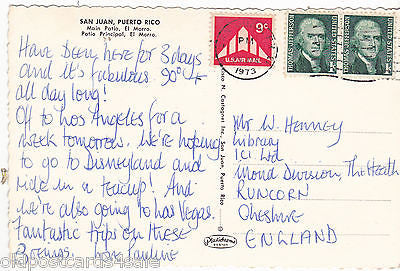 SAN JUAN, PUERTO RICO
Main Patio, El Morro.
Patio Principal, El Morro.
Have been here for 3 days
and it's fabulous. 90° +
all day long!
Off to Los Angeles for a
week tomorrow. We're hoping
to go to Disneyland and
ride in a teacup! And
we're also going to Las Vegas.
Fantastic trips on these
Boeings. Pauline
9c
U.S. AIR MAIL
PM
1973
THOMAS JEFFERSON
UNITED STATES
THOMAS JEFFERSON
UNITED STATES
Inc., San Juan, Puerto Rico
Mr W. Henney
Library
ICI Ltd
Mond Division, The Heath
RUNCORN
Cheshire
ENGLAND
oldpostcards4sale